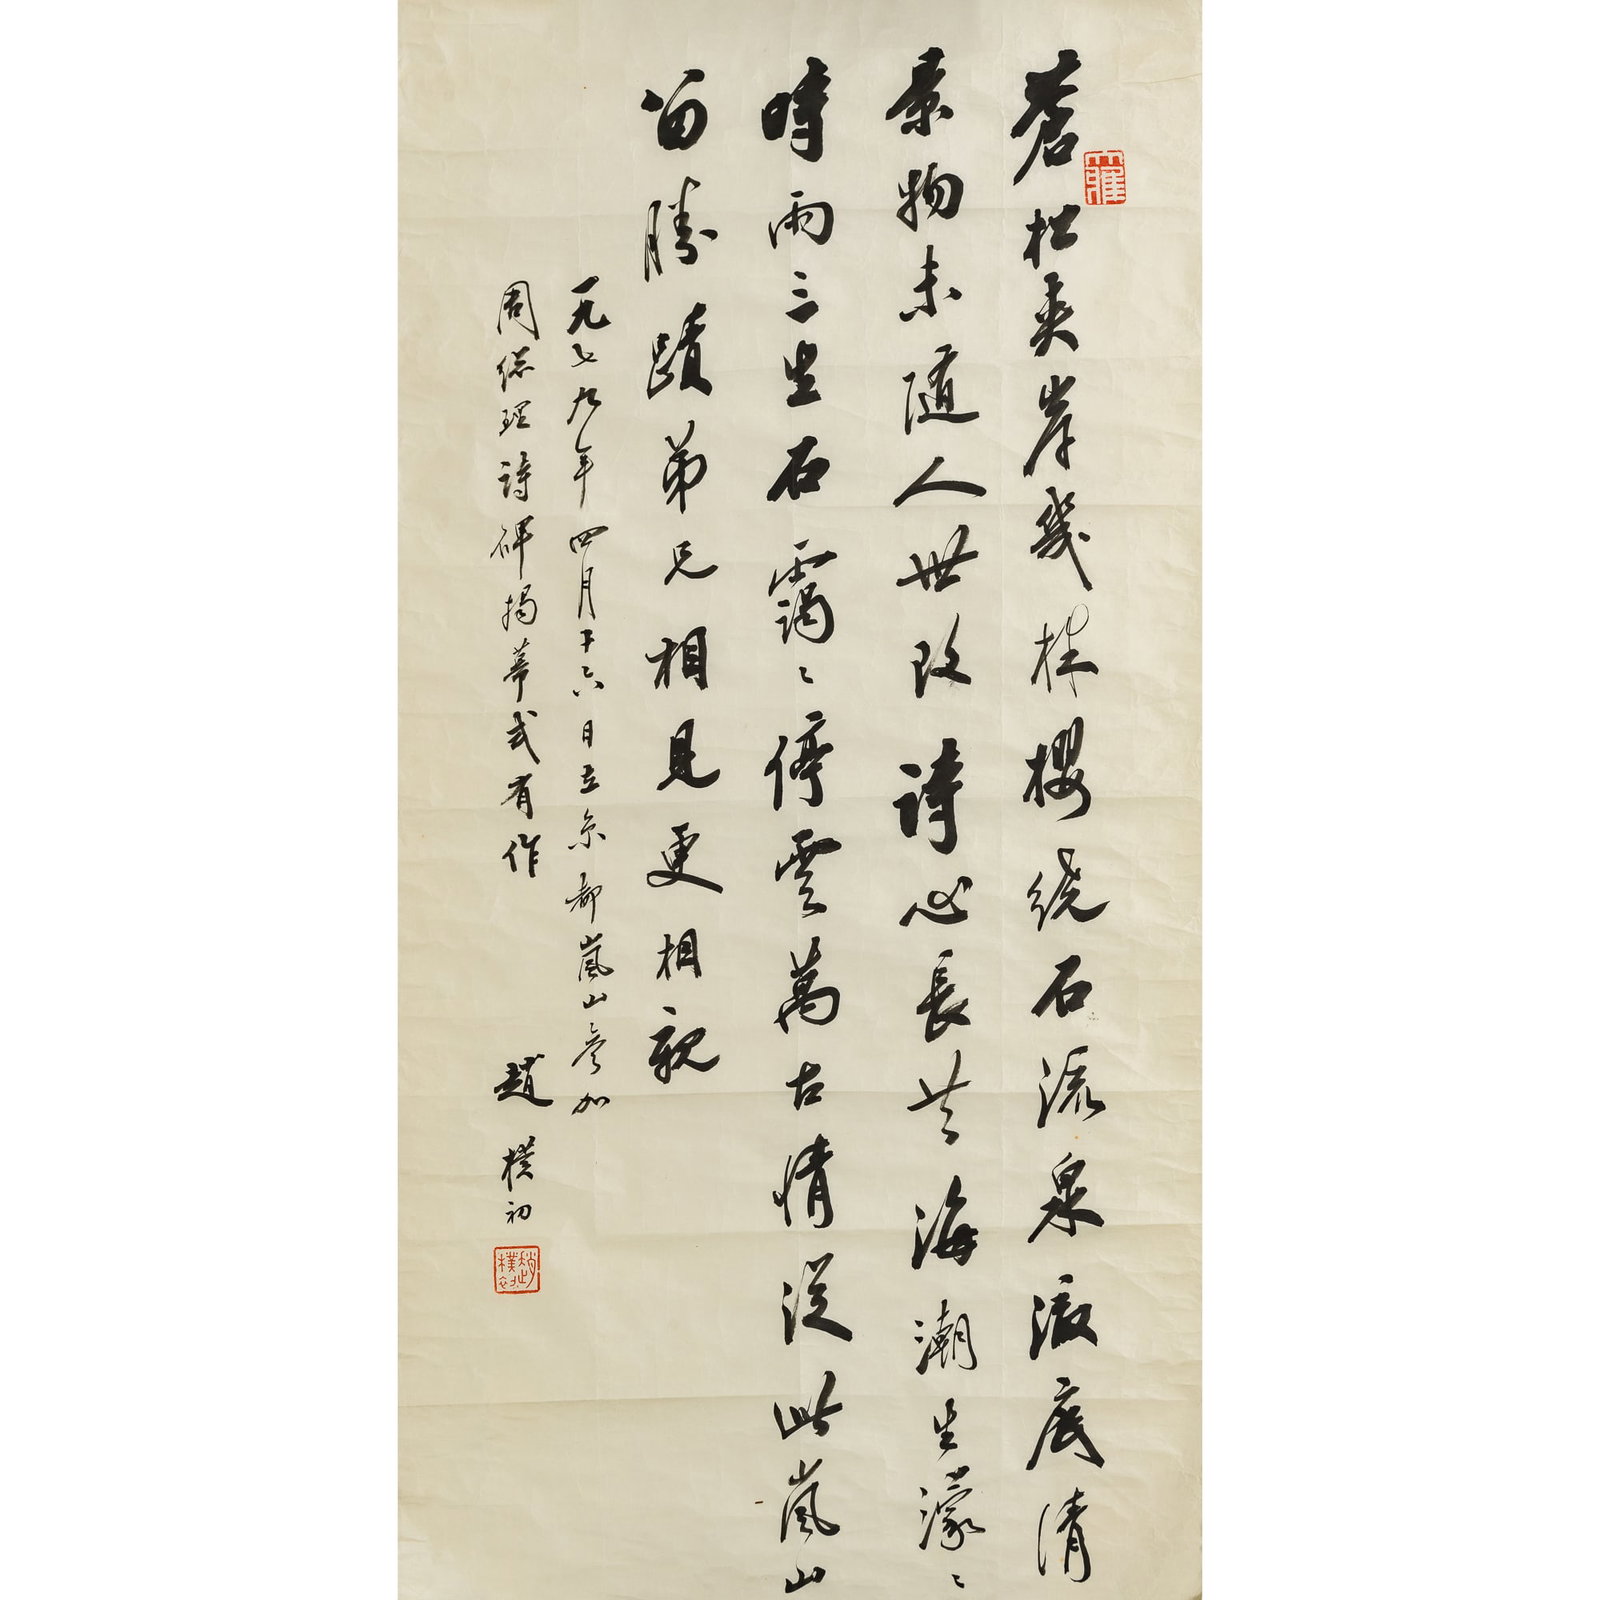 蒼松夾岸幾株櫻绕石流泉澈底清
景物未隨人世改詩心長共海潮生濛〻
時雨三生石靄〻停雲萬古情從此嵐山
留勝蹟弟兄相見更相親
一九七九年四月十六日在京都嵐山參加
周總理詩碑揭幕式有作 趙樸初
趙樸初